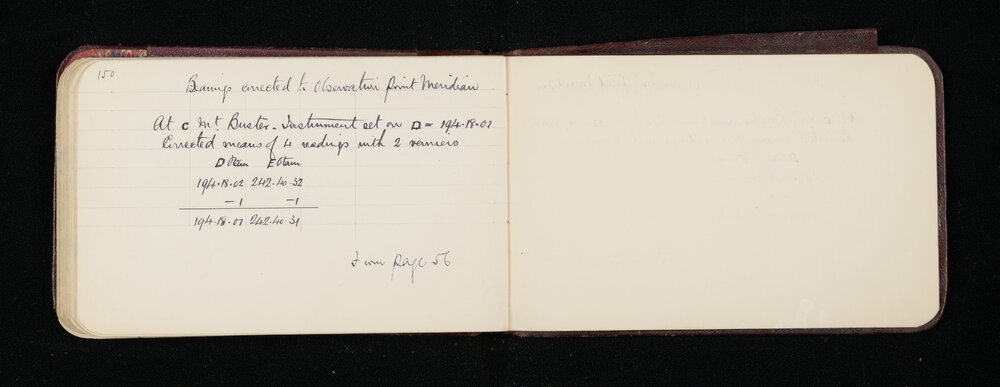 150
Bearings corrected to Observation Point Meridian
At C Mt. Buster - Instrument set on D = 194.18.01
Corrected means of 4 readings with 2 verniers
D Otam E Otam
194.18.02 242.40.32
-1 -1
194.18.01 242.40.31
from page 56